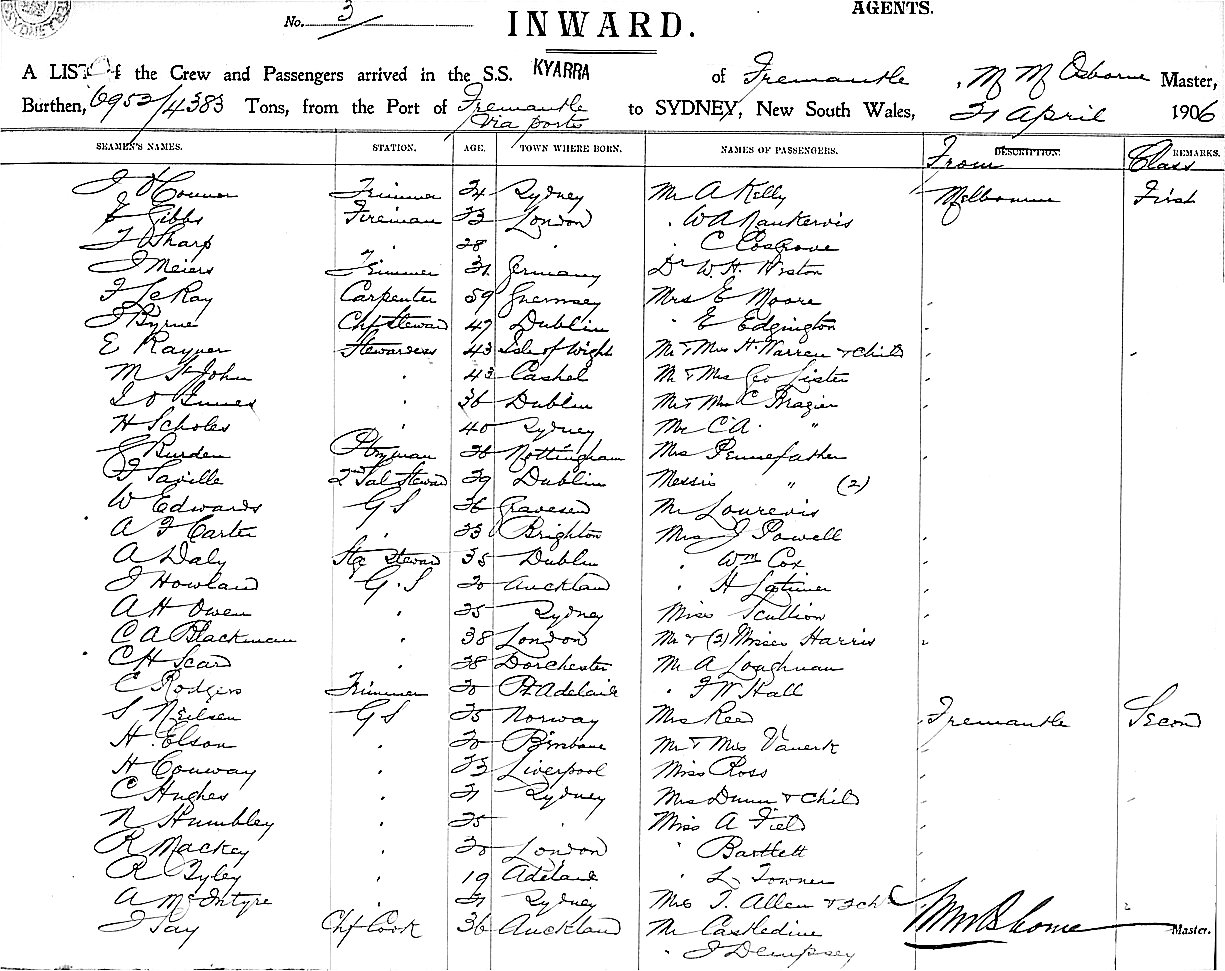 SYDNEY
No. 3
INWARD.
AGENTS.
A LIST of the Crew and Passengers arrived in the S.S. KYARRA of Fremantle, M M Osborne Master,
Burthen, 6953/4383 Tons, from the Port of Fremantle via ports to SYDNEY, New South Wales, 21 April 1906
SEAMEN'S NAMES. STATION. AGE. TOWN WHERE BORN. NAMES OF PASSENGERS. From DESCRIPTION. Class REMARKS.
J O'Connor Trimmer 24 Sydney Mr A Kelly Melbourne First
Gibbs Fireman 23 London " W A Nankervis
Sharp " 28 " " C Cosgrove
J Meiers Trimmer 31 Germany Dr W. H.
F Le Ray Carpenter 59 Guernsey Mrs E Moore "
J Byrne Chf Steward 47 Dublin " E Edgington "
E Rayner Stewardess 43 Isle of Wight Mr & Mrs H. Warren & Child " "
M St John " 43 Cashel Mr & Mrs Geo Lister "
Innes " 36 Dublin Mr & Mrs C Brazier "
H Scholes " 40 Sydney Mr C A. " "
Burden Ptryman 38 Nottingham Mrs Pennefather "
Saville 2nd Sal Steward 29 Dublin Messrs " (2) "
W Edwards G S 36 Gravesend Mr "
A F Carter " 23 Brighton Mrs J Powell "
A Daly Stge Steward 35 Dublin " Wm Cox "
J Howland G.S 20 Auckland " H Latimer "
A H Owen " 25 Sydney Miss Scullion "
C A Blackman " 38 London Mr & (2) Misses Harris "
C H Scard " 28 Dorchester Mr A Loughnan "
C Rodgers Trimmer 20 Pt Adelaide " F W Hall "
S Neilsen G S 25 Norway Mrs Reed Fremantle Second
H. Elson " 20 Brisbane Mr & Mrs "
H Conway " 23 Liverpool Miss Ross "
C Hughes " 21 Sydney Mrs Dunn & Child " "
N Humbley " 25 " Miss A Field "
R Mackey " 20 London " Bartlett "
R Tyley " 19 Adelaide " L Towner "
A McIntyre " 21 Sydney Mrs T. Allen & 2 ch "
J Tay Chf Cook 36 Auckland Mr Caskedine
" J Dempsey
M M Osborne Master.